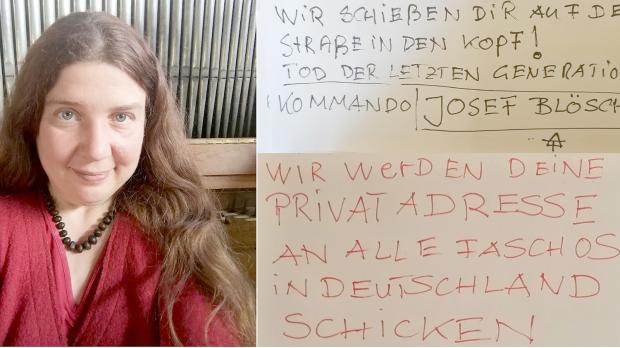 WIR SCHIEßEN DIR AUF DE
STRAßE IN DEN KOPF!
TOD DER LETZTEN GENERATIO
KOMMANDO JOSEF BLÖSCH
WIR WERDEN DEINE
PRIVATADRESSE
AN ALLE FASCHOS
IN DEUTSCHLAND
SCHICKEN